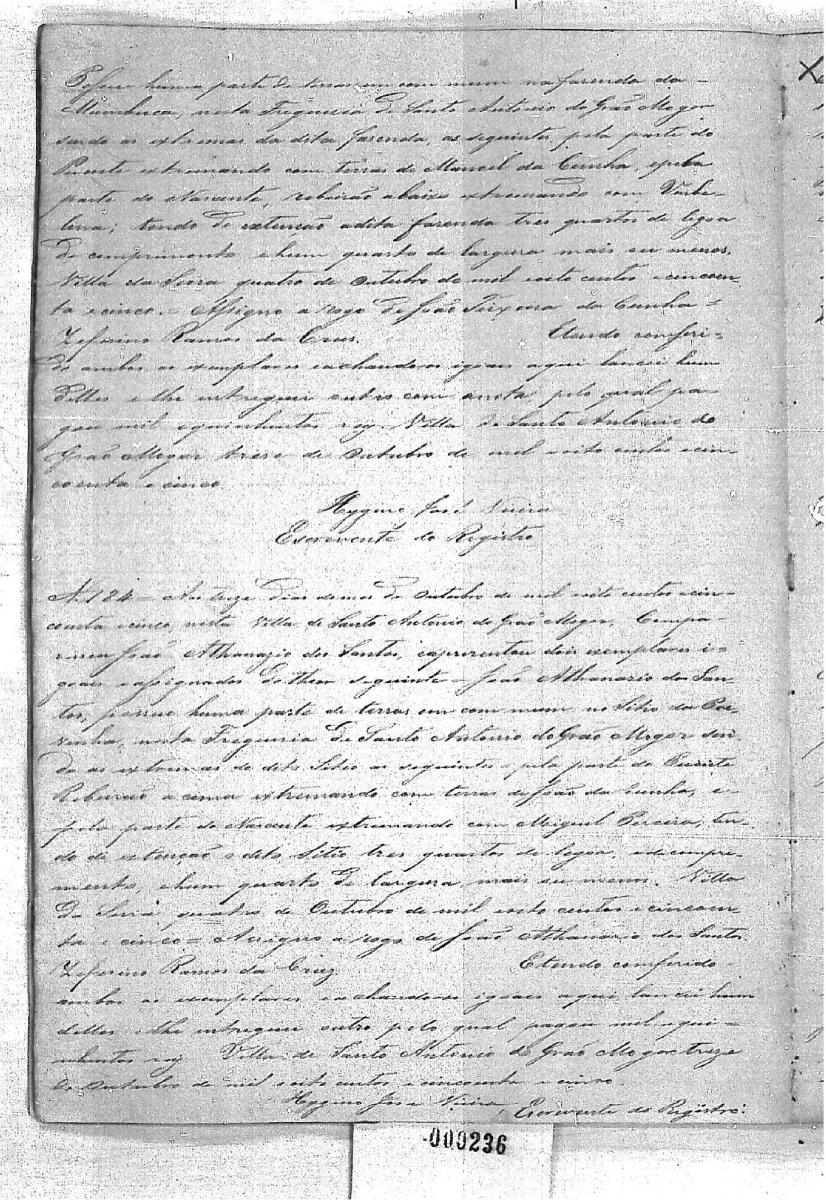 Possue huma parte de terras em com mum na fazenda da
Mumbuca, nesta Freguesia de Santo Antonio do Grão Mogor
sendo as extremas da dita fazenda, as seguintes pela parte do
Puente extremando com terras de Manoel da Cunha, epela
parte do Nascente, rebeirão abaixo extremando com
tendo de extenção adita fazenda tres quartos de legoa
de comprimento ehum quarto de largura mais ou menos.
Villa da Serra quatro de Outubro de mil oito centos ecincoen-
ta e cinco. = Assigno a rogo de João Teixeira da Cunha =
Zeferino Ramos da Crus. Etendo comferi-
do ambos os exemplares eachando-os igoaes aqui lancei hum
delles e lhe entreguei outro com anota pelo qual pa-
gou mil equinhentos reis Villa de Santo Antonio do
Grão Mogor trese de Outubro de mil oito centos ecin-
coenta e cinco
Hygino José Vieira
Escrevente do Registro
N. 124 = Aos treze dias do mes de Outubro de mil oito centos ecin-
coenta ecinco, nesta Villa de Santo Antonio do Grão Mogor, Compa-
receu João Athanazio dos Santos, eaprezentou dois exemplares i-
goaes eassignados do theor seguinte = João Athanazio dos San-
tos, possue huma parte de terras em com mum no Sitio da
nesta Freguesia de Santo Antonio do Grão Mogor sen-
do as extremas do dito Sitio as seguintes pela parte do Puente
Rebeirão acima extremando com terras de João da Cunha, e
pela parte do Nascente extremando com Miguel Pereira, ten-
do de extenção o dito Sitio tres quartos de legoa, edecompri-
mento, ehum quarto de largura mais ou menos. Villa
da Serra quatro de Outubro de mil oito centos ecincoen-
ta e cinco = Assigno a rogo de João Athanazio dos Santos.
Zeferino Ramos da Cruz Etendo comferido
ambos os exemplares eachando-os igoaes aqui lancei hum
delles elhe entreguei outro pelo qual pagou mil equi-
nhentos reis Villa de Santo Antonio do Grão Mogor treze
de Outubro de mil oito centos ecincoenta e cinco.
Hygino Jose Vieira, Escrevente do Registro.
000236